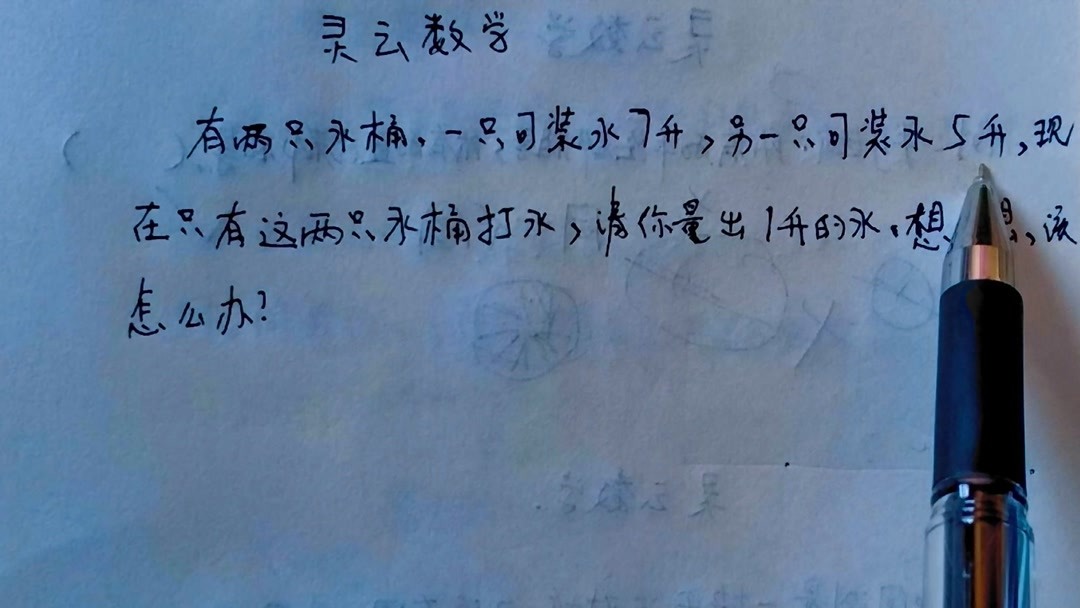 灵云数学
有两只水桶,一只可装水7升,另一只可装水5升,现
在只有这两只水桶打水,请你量出1升的水,想 想,该
怎么办?